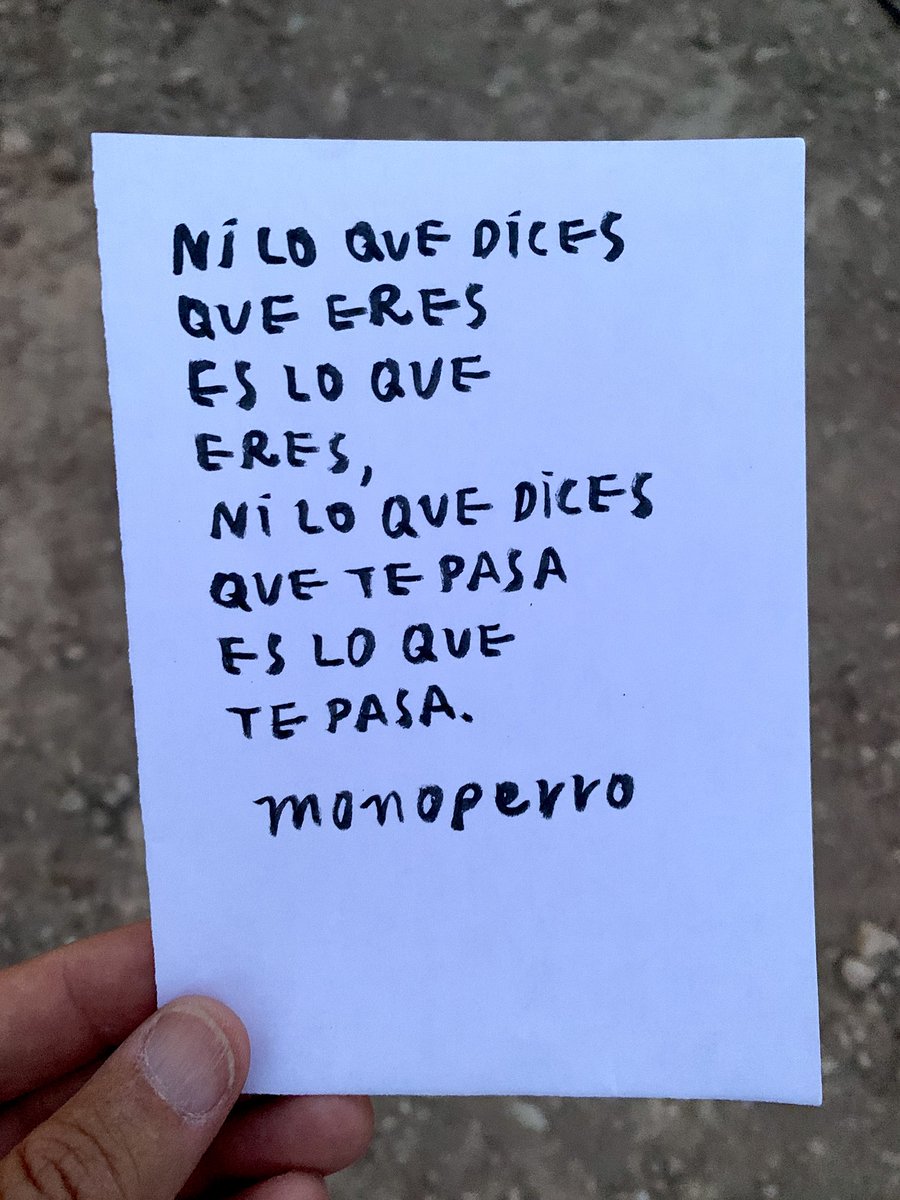 Ni LO QUE DiCES
QUE ERES
ES LO QUE
ERES,
Ni LO QUE DiCES
QUE TE PASA
ES LO QUE
TE PASA.
monoperro